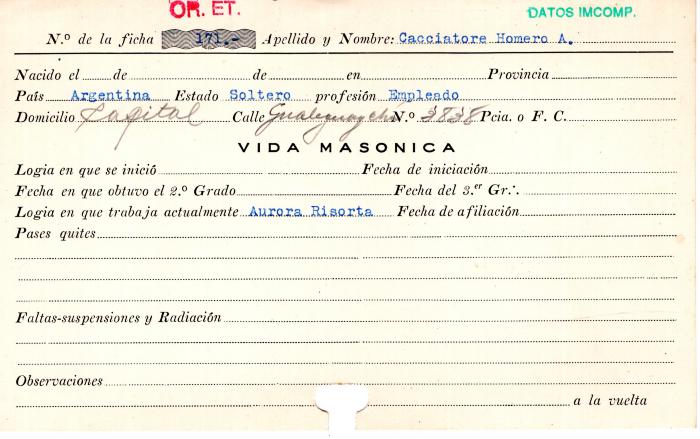 OR. ET.
DATOS IMCOMP.
N.º de la ficha 171.- Apellido y Nombre: Cacciatore Homero A.
Nacido el de de en Provincia
País Argentina Estado Soltero profesión Empleado
Domicilio Capital Calle Gualeguaychú N.º 3838 Pcia. o F. C.
VIDA MASONICA
Logia en que se inició Fecha de iniciación
Fecha en que obtuvo el 2.º Grado Fecha del 3.er Gr∴
Logia en que trabaja actualmente Aurora Risorta Fecha de afiliación
Pases quites
Faltas-suspensiones y Radiación
Observaciones
a la vuelta